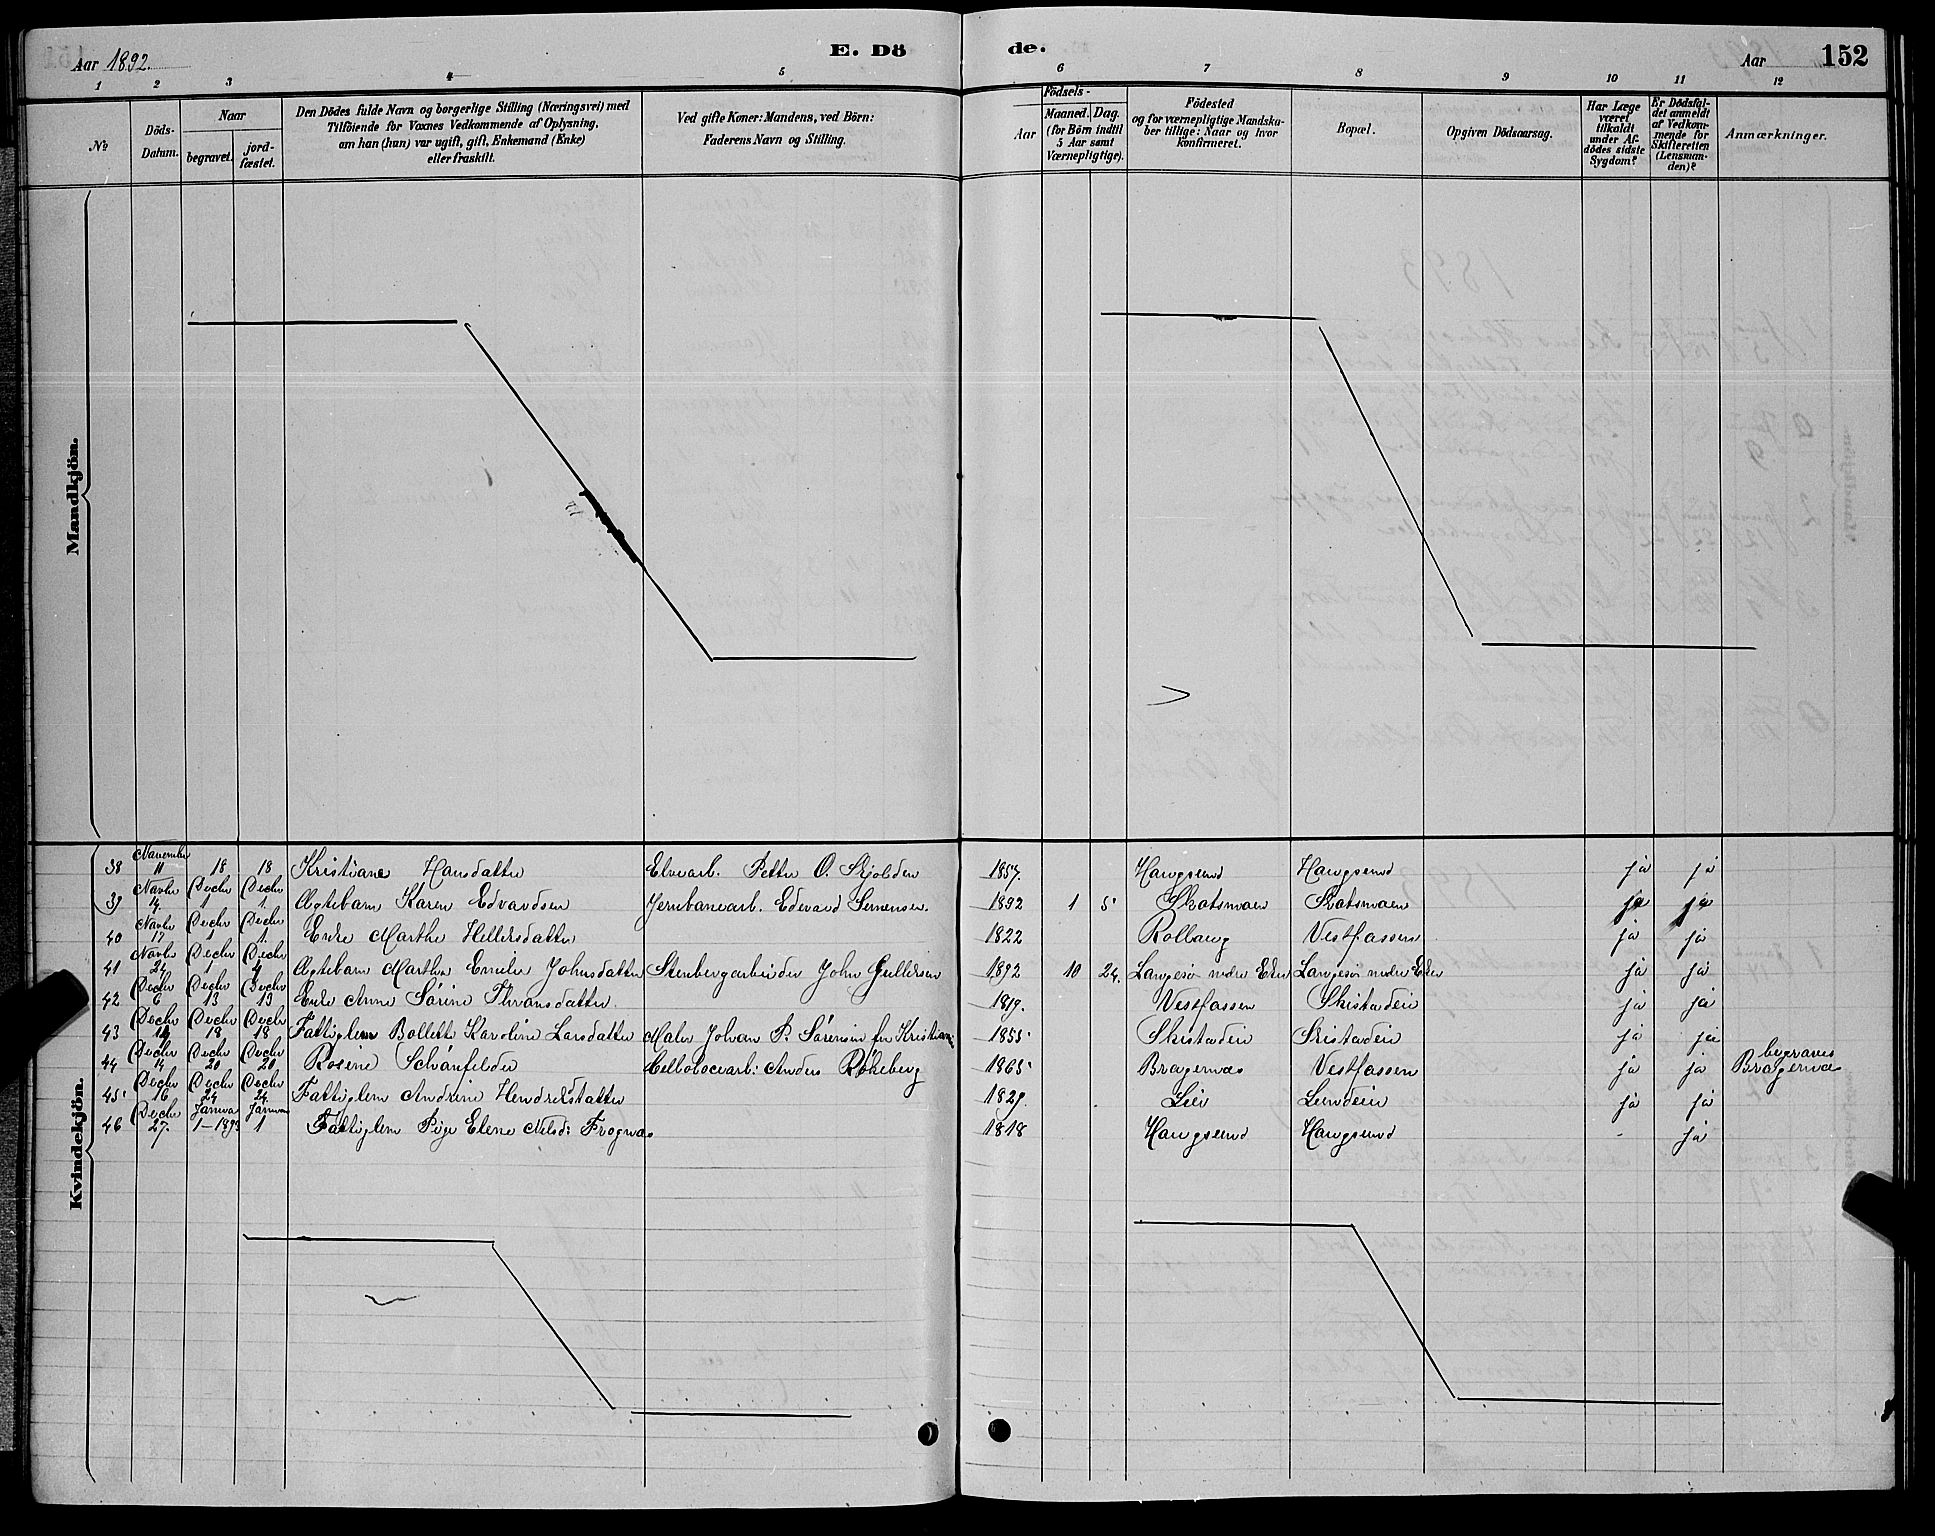 Aar 1892.
E. Dö
de.
Aar
152
1 2 3 4 5 6 7 8 9 10 11 12
No
Döds-Datum.
Naar
begravet.
jordfæstet.
Den Dödes fulde Navn og borgerlige Stilling (Næringsvei) med
Tilföiende for Voxnes Vedkommende af Oplysning,
om han (hun) var ugift, gift, Enkemand (Enke)
eller fraskilt.
Ved gifte Koner: Mandens, ved Börn:
Faderens Navn og Stilling.
Födsels-
Aar
Maaned. Dag.
(for Börn indtil
5 Aar samt
Værnepligtige).
Födested
og for værnepligtige Mandskaber tillige: Naar og hvor
konfirmeret.
Bopæl.
Opgiven Dödsaarsag.
Har Læge
været
tilkaldt
under Afdödes sidste
Sygdom?
Er Dödsfaldet anmeldt
af Vedkommende for
Skifteretten
(Lensmanden)?
Anmærkninger.
Mandkjön.
Kvindekjön.
38 November 11 18 18 Kristiane Hansdatter Elvearb. Petter O. Skjolden 1857. Haugsund Haugsund ja ja
39 Novbr 14. Decbr 1 Decbr 1. Ægtebarn Karen Edvardsen Jernbanearb. Edvard Sørensen 1892 1 5 Skotsmoen Skotsmoen ja ja
40 Novbr 17 Decbr 1 Decbr 1. Enke Marthe Hellersdatter 1822 Rolloug Vestfossen ja ja
41 Novbr 24 Decbr 1 Decbr 4 Ægtebarn Martha Emilie Johnsdatter Stenbergarbeider John Gulliksen 1892 10 24. Langesø nedre Eker Langesø nedre Eker ja ja
42 Decbr 6 Decbr 13 Decbr 13 Enke Anne Sørine Thronsdatter 1819. Vestfossen Skistadeie ja ja
43 Decbr Decbr 18 Decbr 18 Fattiglem Bollette Karoline Larsdatter Maler Johan P. Sørensen fra Kristiania 1855 Skistadein Skistadein ja ja
44 Decbr 14 Decbr 20 Decbr 20 Rosine Schönfelder Cellulosearb: Anders Røkeberg 1865 Bragernæs Vestfossen ja ja begraves Bragernæs
45 Decbr 16 Decbr 24 Decbr 24 Fattiglem Andrine Hendriksdatter 1829. Lier Lundein ja ja
46 Decbr 27. Januar 1-1893 Januar 1 Fattiglem Pige Elene Nilsd: Frognæs 1818 Haugsund Haugsund - ja